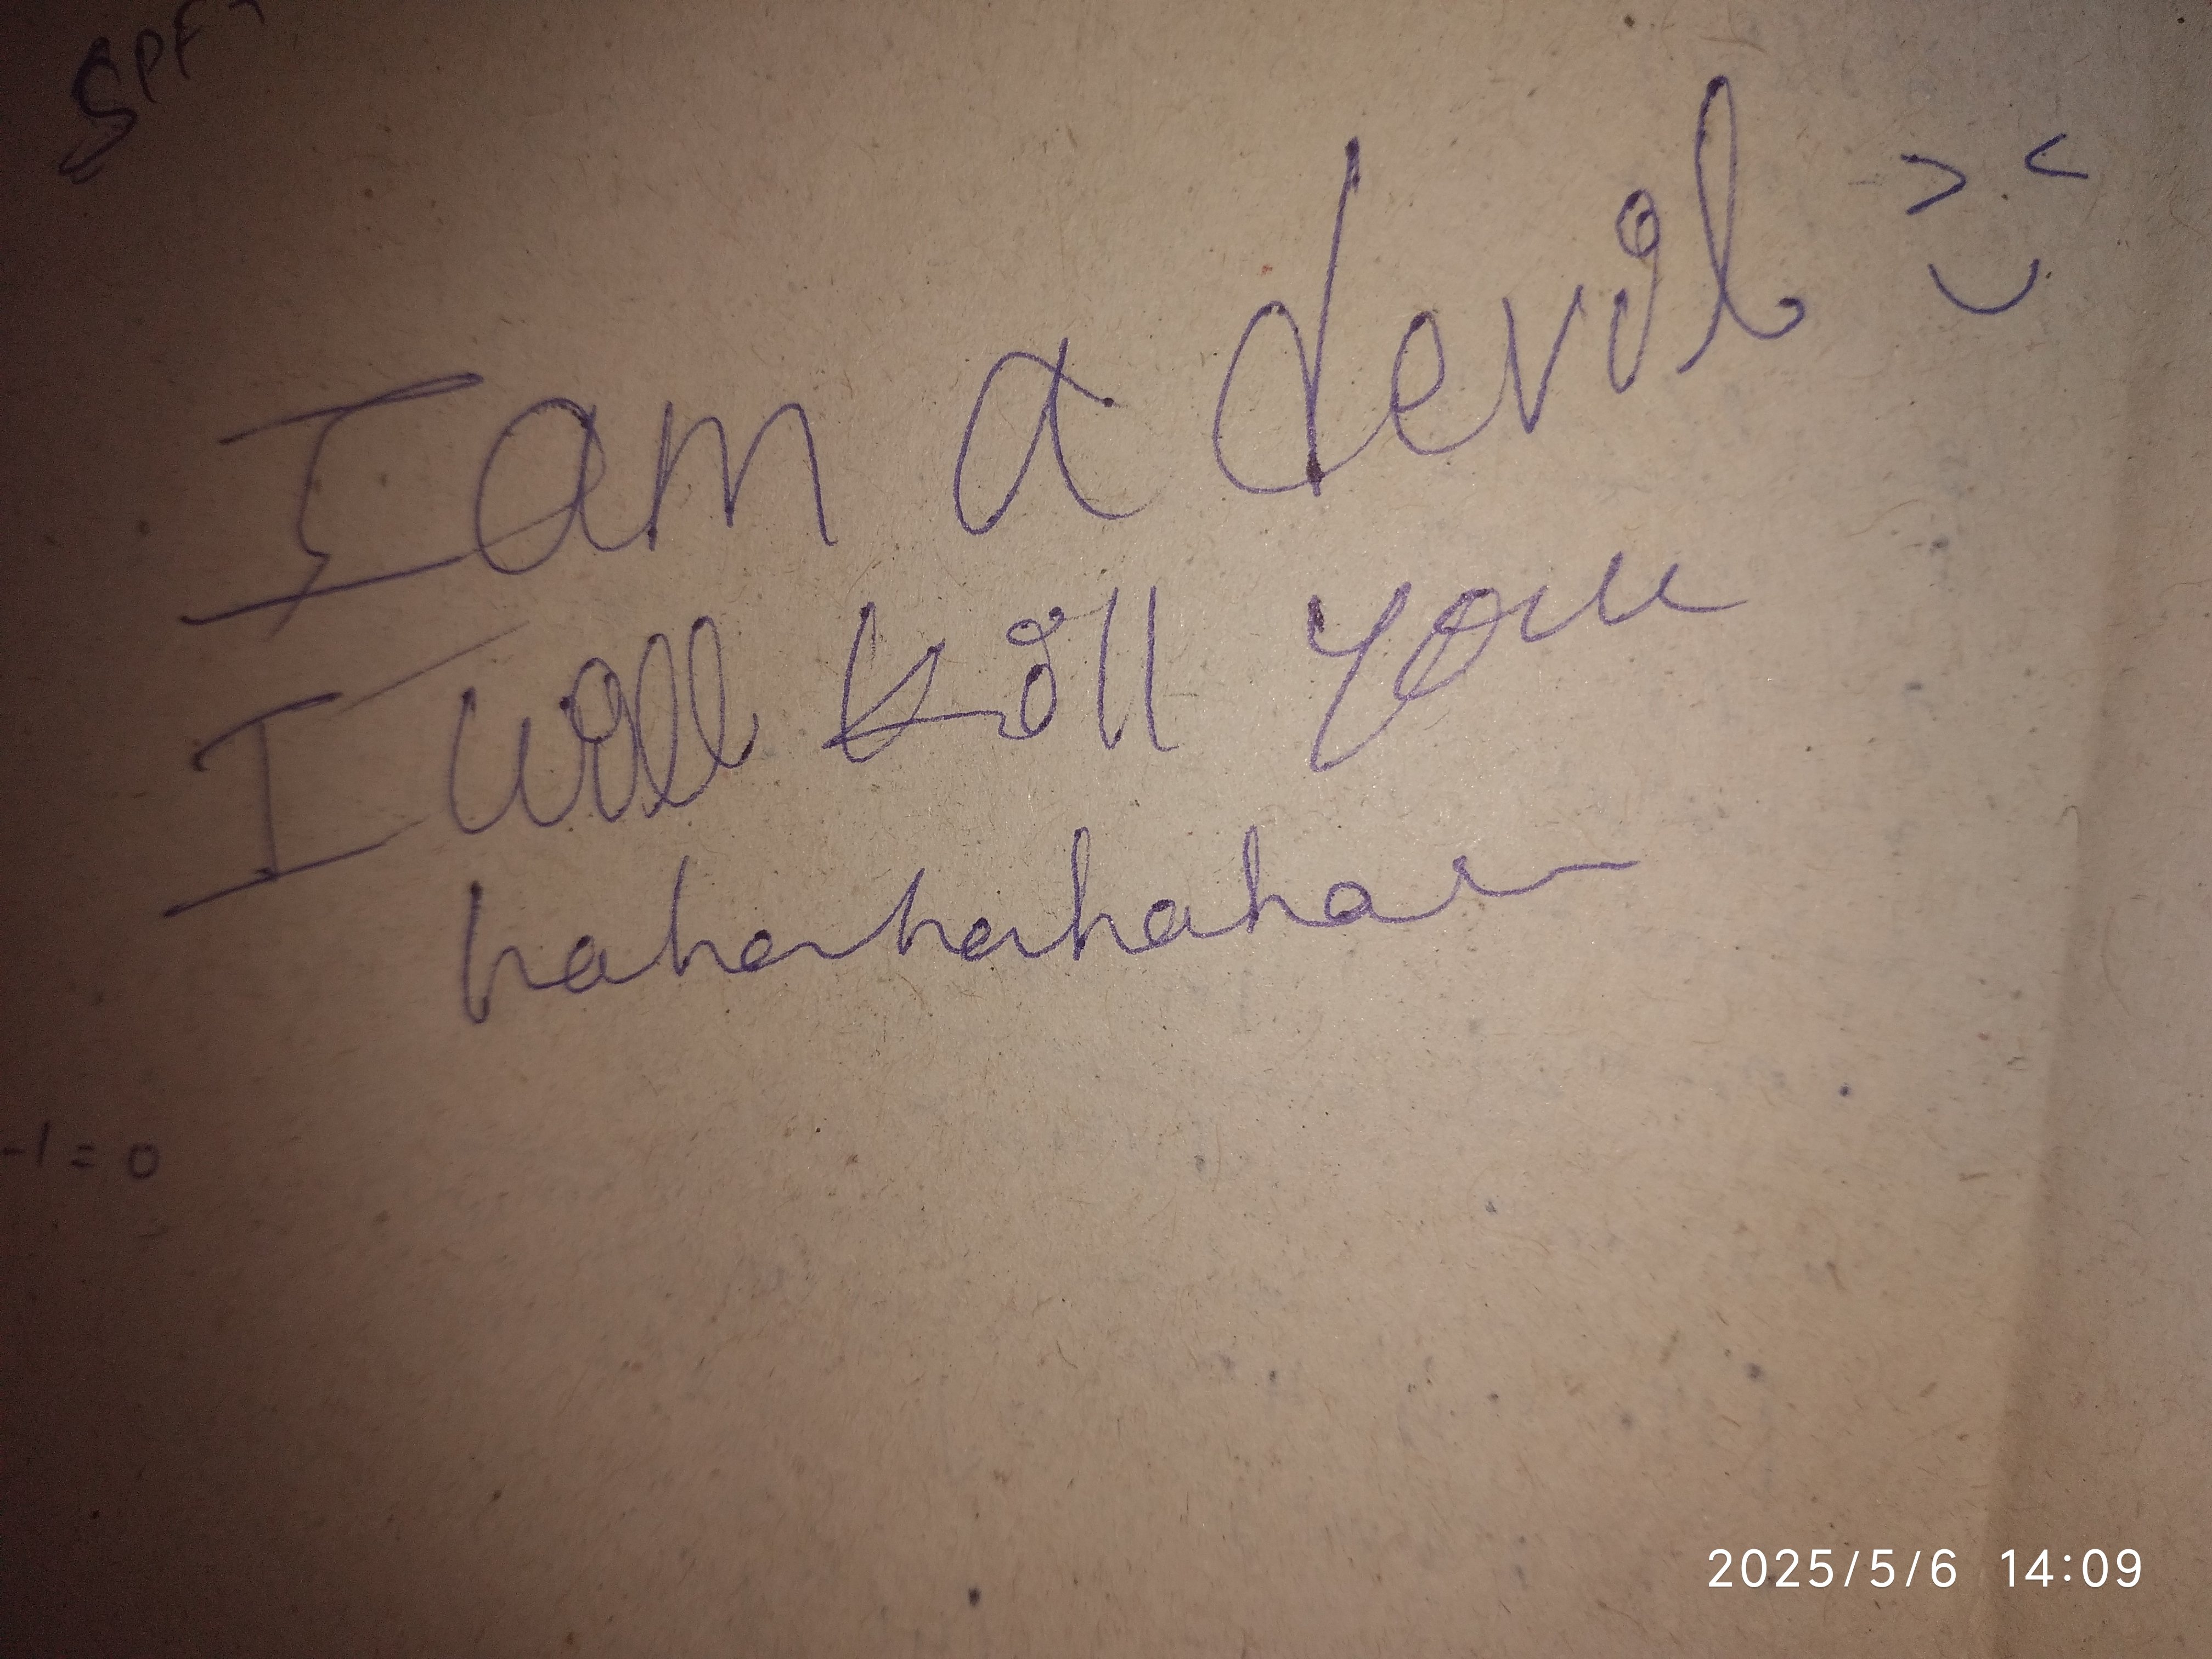 I am a devil
I will kill you
hahahahaha
-1 = 0
2025/5/6 14:09